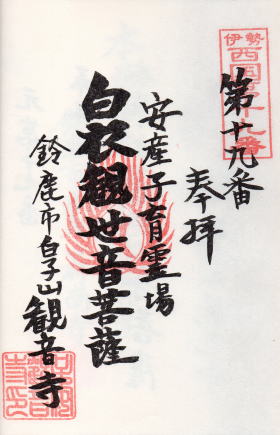 伊勢
西国十九番
第十九番
奉拝
安産子育霊場
白衣観世音菩薩
鈴鹿市白子山観音寺